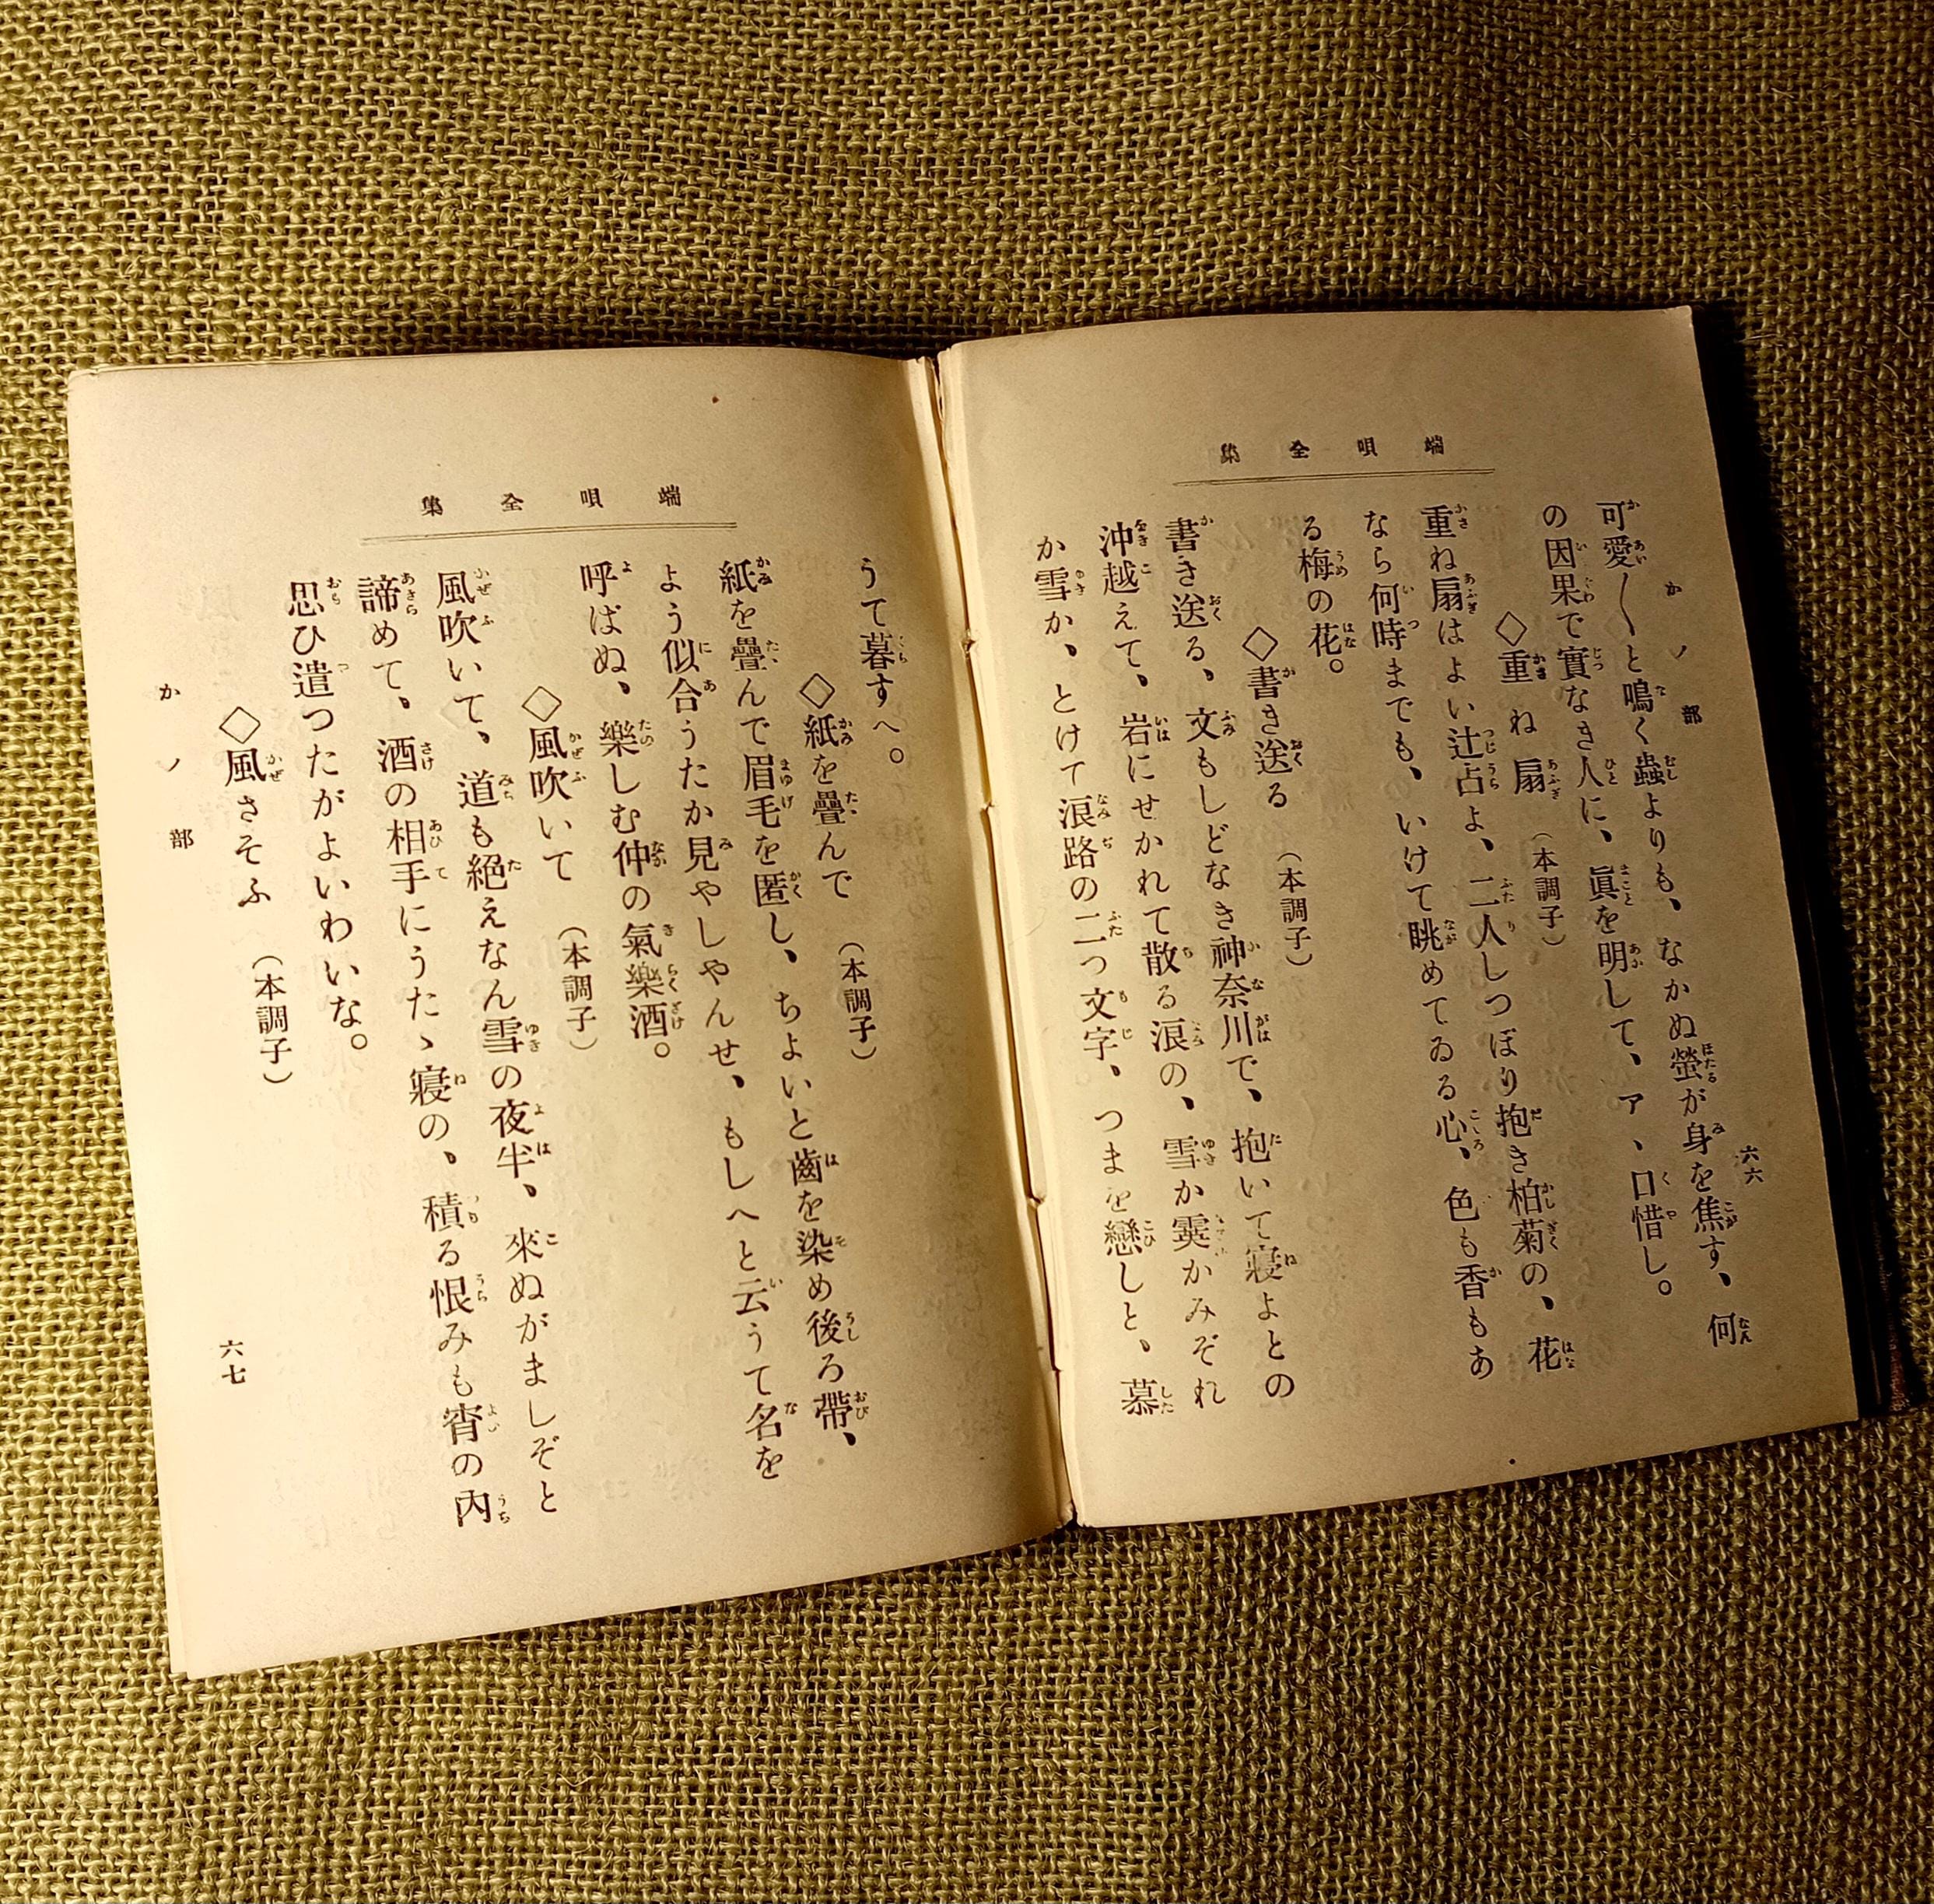 端唄全集
かノ部
六六
可愛〱と鳴く蟲よりも、なかぬ螢が身を焦す、何
の因果で實なき人に、眞を明して、ア、口惜し。
◇重ね扇（本調子）
重ね扇はよい辻占よ、二人しつぽり抱き柏菊の、花
なら何時までも、いけて眺めてゐる心、色も香もあ
る梅の花。
◇書き送る（本調子）
書き送る、文もしどなき神奈川で、抱いて寢よとの
沖越えて、岩にせかれて散る浪の、雪か霙かみぞれ
か雪か、とけて浪路の二つ文字、つまを戀しと、慕
端唄全集
うて暮すへ。
◇紙を疊んで（本調子）
紙を疊んで眉毛を匿し、ちよいと齒を染め後ろ帶、
よう似合うたか見やしやんせ、もしへと云うて名を
呼ばぬ、樂しむ仲の氣樂酒。
◇風吹いて（本調子）
風吹いて、道も絕えなん雪の夜半、來ぬがましぞと
諦めて、酒の相手にうたゝ寢の、積る恨みも宵の內
思ひ遣つたがよいわいな。
◇風さそふ（本調子）
かノ部
六七